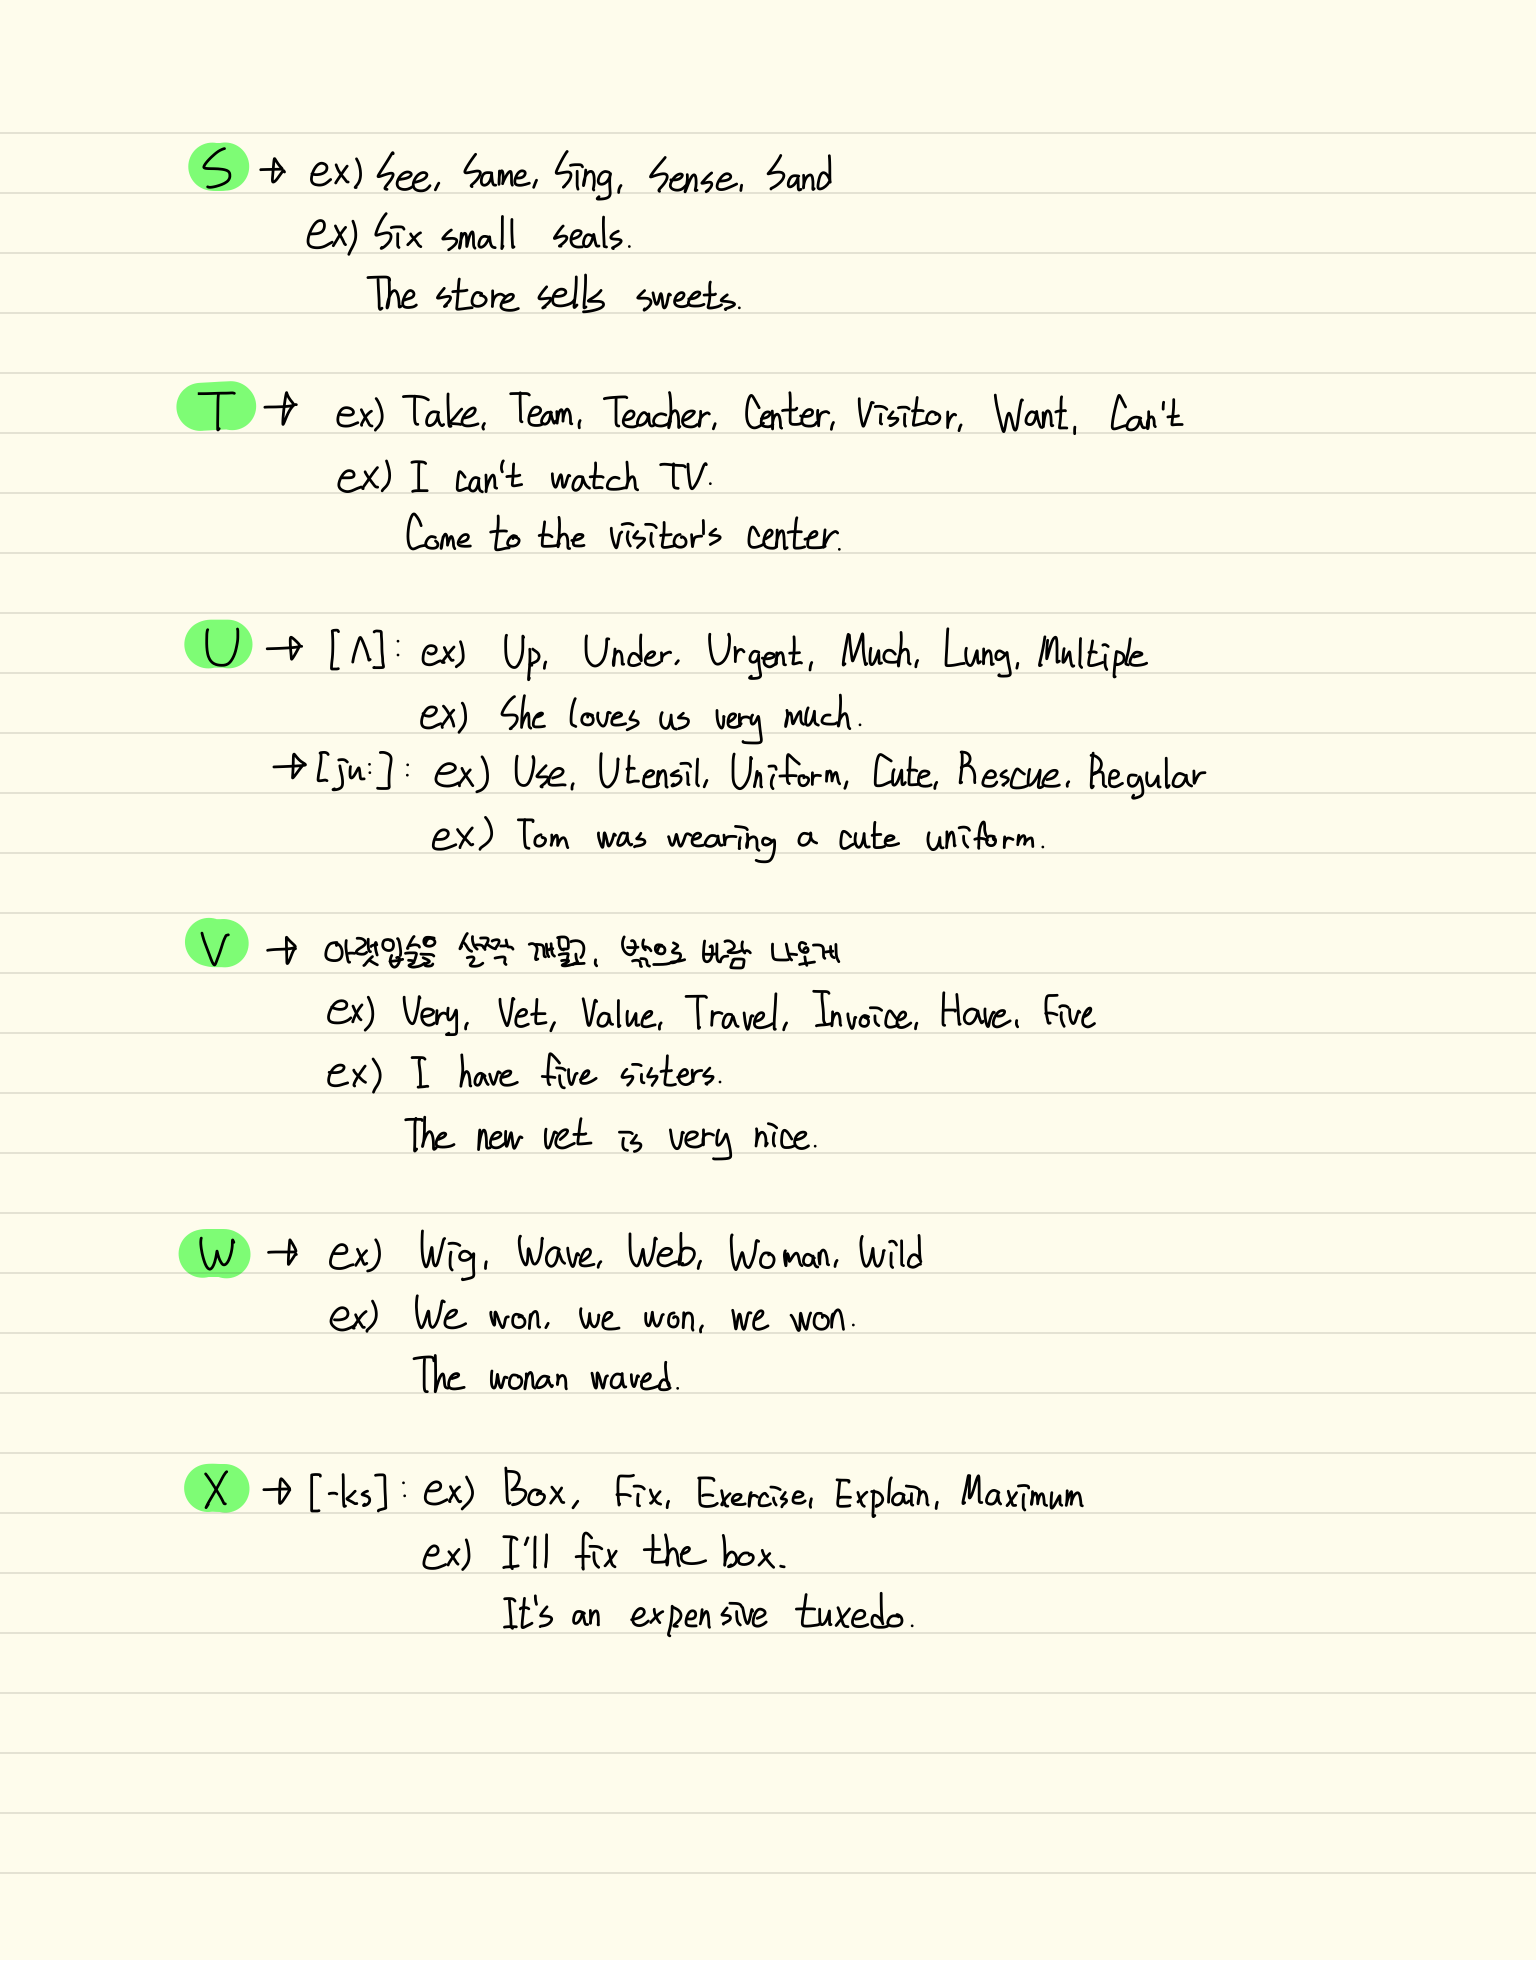 S → ex) See, Same, Sing, Sense, Sand
ex) Six small seals.
The store sells sweets.
T → ex) Take, Team, Teacher, Center, Visitor, Want, Can't
ex) I can't watch TV.
Come to the visitor's center.
U → [ʌ]: ex) Up, Under, Urgent, Much, Lung, Multiple
ex) She loves us very much.
→ [ju:]: ex) Use, Utensil, Uniform, Cute, Rescue, Regular
ex) Tom was wearing a cute uniform.
V → 아랫입술을 살짝 깨물고, 밖으로 바람 나오게
ex) Very, Vet, Value, Travel, Invoice, Have, Five
ex) I have five sisters.
The new vet is very nice.
W → ex) Wig, Wave, Web, Woman, Wild
ex) We won, we won, we won.
The wonan waved.
X → [-ks]: ex) Box, Fix, Exercise, Explain, Maximum
ex) I'll fix the box.
It's an expensive tuxedo.